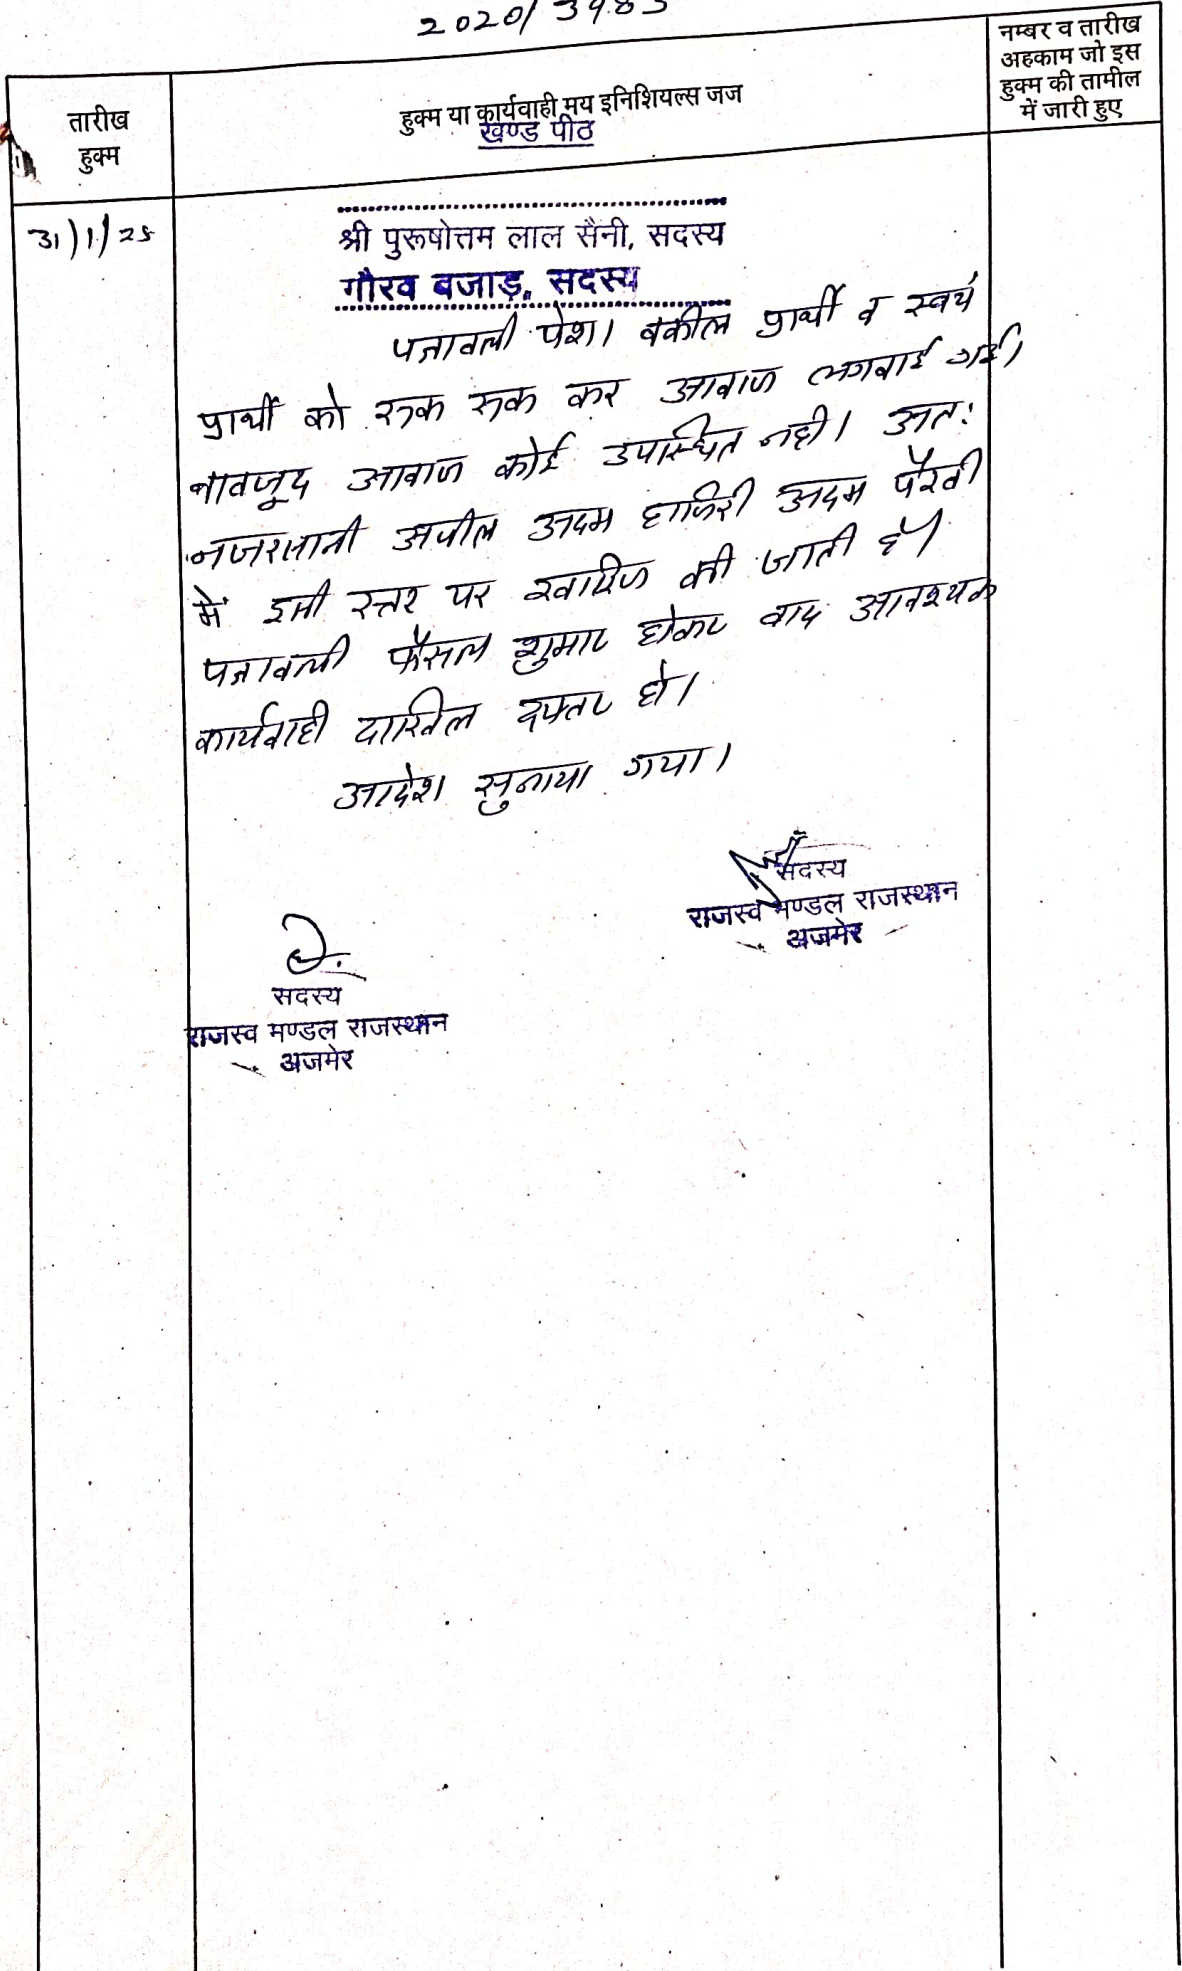 2020/3983
नम्बर व तारीख
अहकाम जो इस
हुक्म की तामील
में जारी हुए
तारीख
हुक्म
हुक्म या कार्यवाही मय इनिशियल्स जज
खण्ड पीठ
31/1/25
श्री पुरूषोत्तम लाल सैनी, सदस्य
गौरव बजाड़, सदस्य
पत्रावली पेश। वकील प्रार्थी व स्वयं
प्रार्थी को रूक रूक कर आवाज लगवाई गई।
बावजूद आवाज कोई उपस्थित नही। अतः
नजरसानी अपील अदम हाजिरी अदम पैरवी
में इसी स्तर पर खारिज की जाती है।
पत्रावली फैसल शुमार होकर बाद आवश्यक
कार्यवाही दाखिल दफ्तर हो।
आदेश सुनाया गया।
सदस्य
राजस्व मण्डल राजस्थान
अजमेर
सदस्य
राजस्व मण्डल राजस्थान
अजमेर